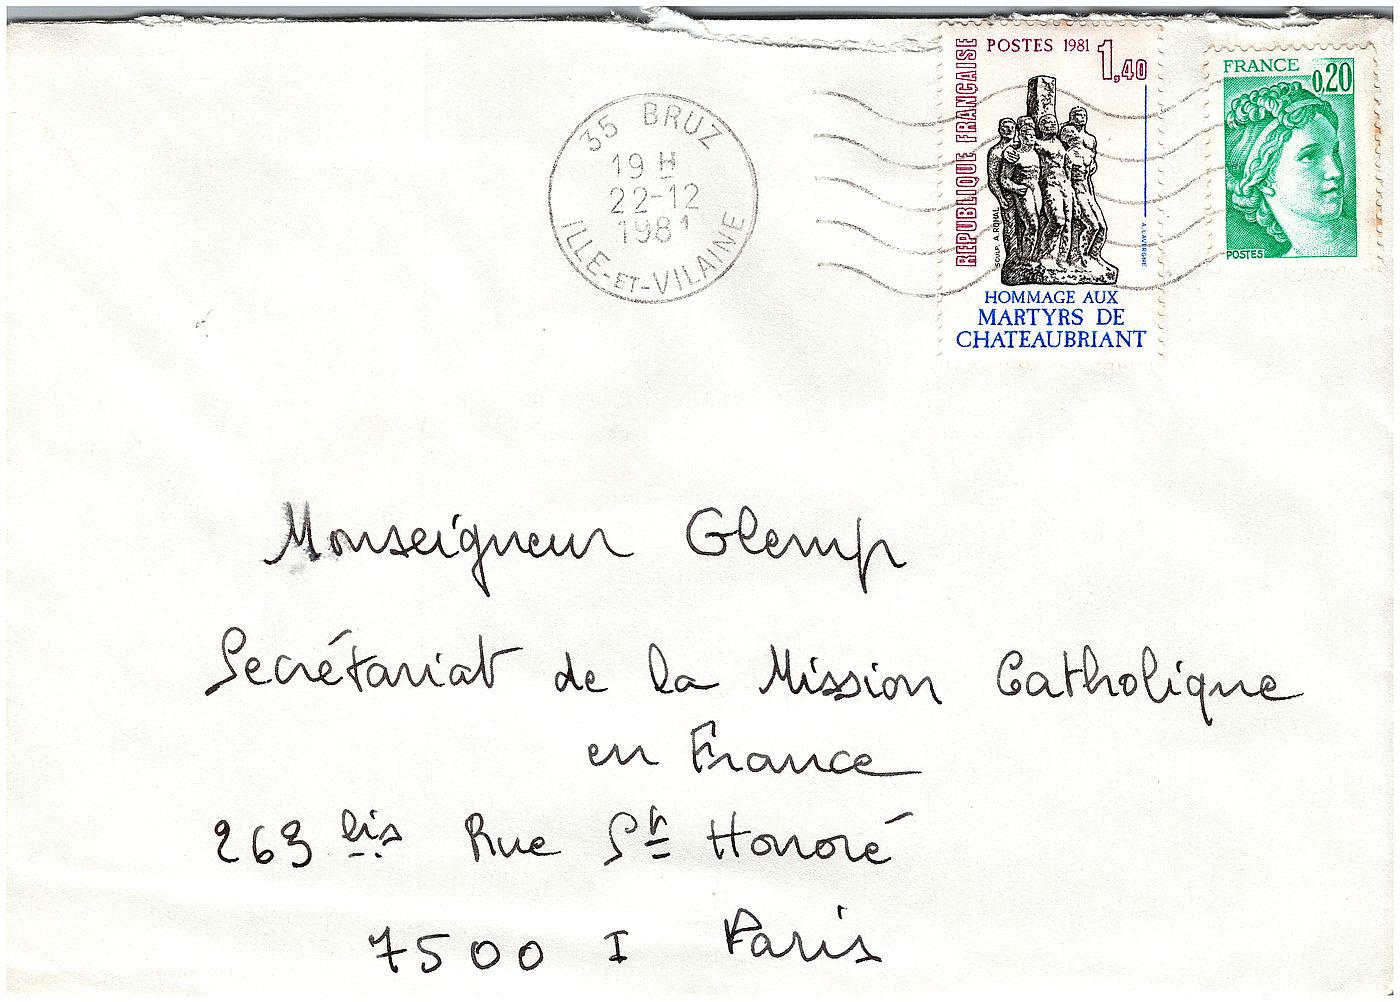 35 BRUZ
19 H
22-12
1981
ILLE-ET-VILAINE
REPUBLIQUE FRANÇAISE
POSTES 1981 1,40
SCULP. A. ROHAL
A. LAVERGNE
HOMMAGE AUX
MARTYRS DE
CHATEAUBRIANT
FRANCE
0,20
POSTES
Monseigneur Glemp
Secrétariat de la Mission Catholique
en France
263 bis Rue St Honoré
7500 I Paris